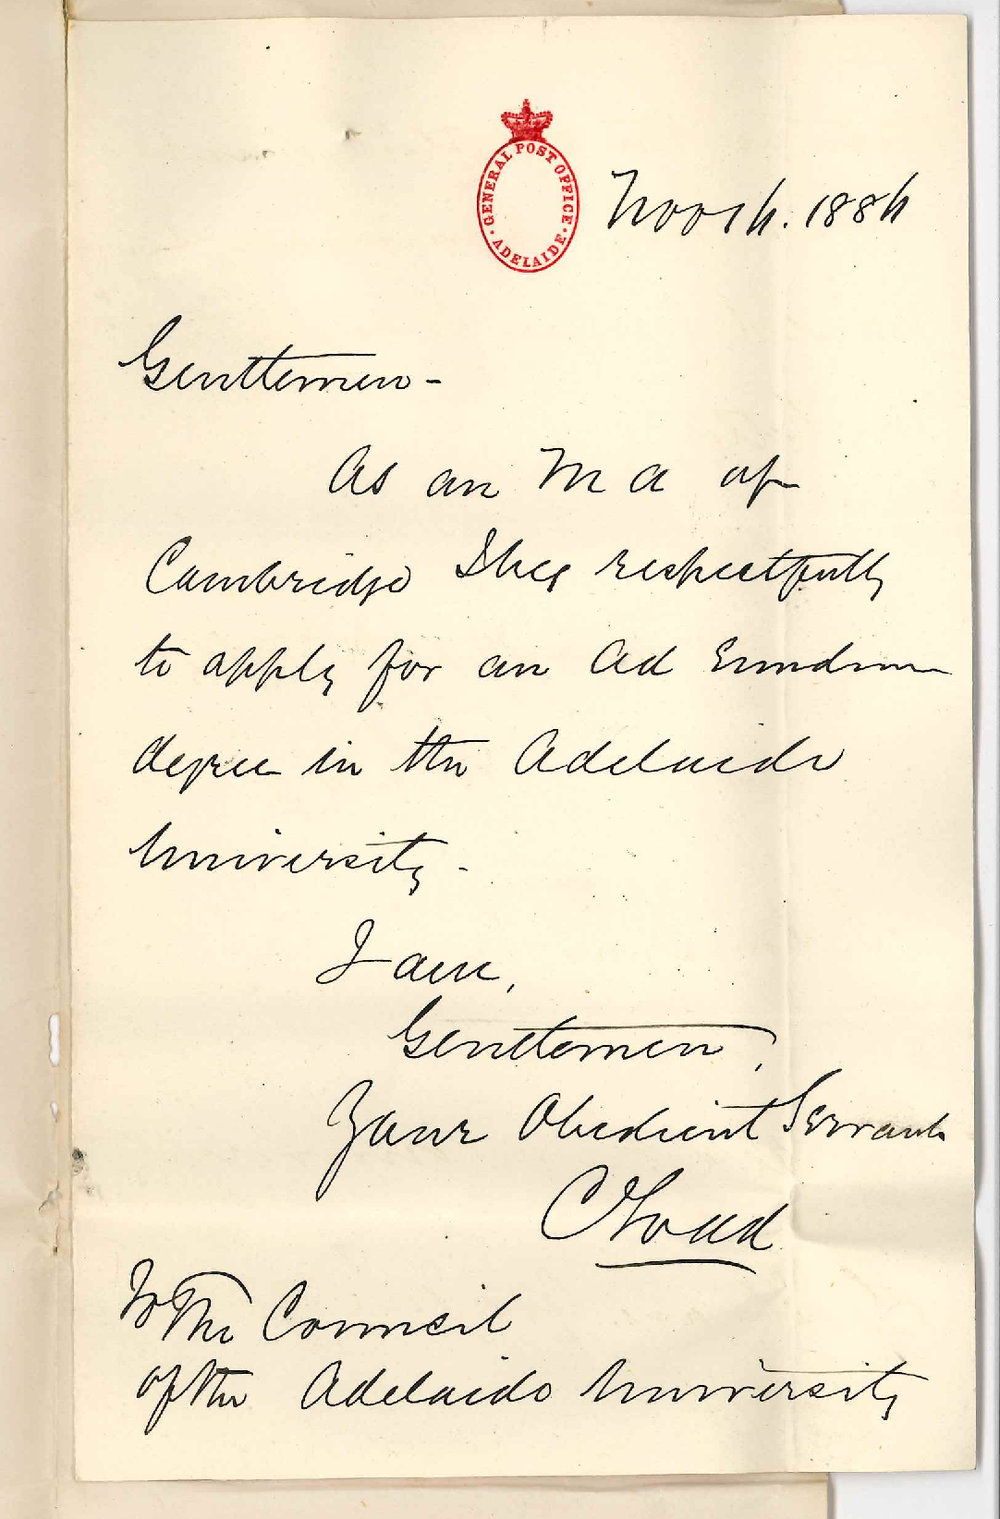 GENERAL POST OFFICE · ADELAIDE ·
Nov 16. 1886
Gentlemen -
As an M A of
Cambridge I beg respectfully
to apply for an Ad Eundem
degree in the Adelaide
University -
I am,
Gentlemen,
Your Obedient Servant
C Todd
To The Council
of the Adelaide University